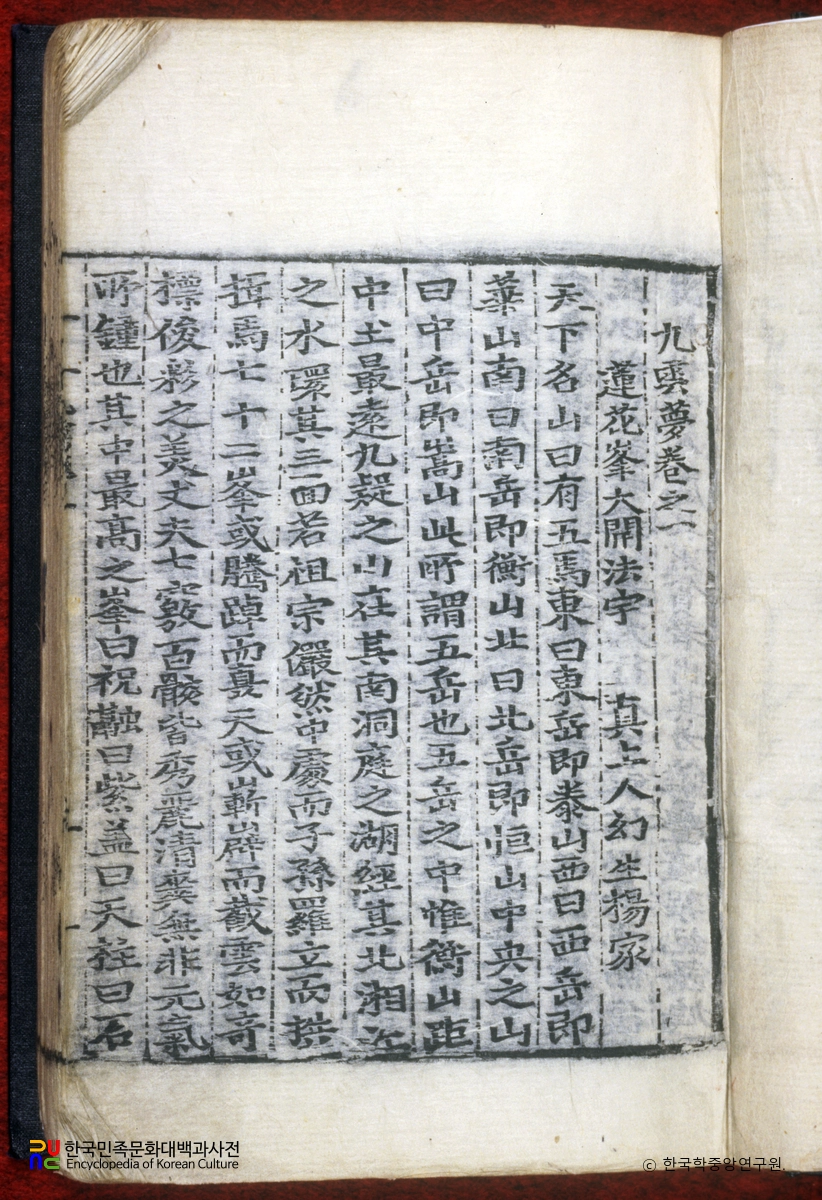 九雲夢卷之一
蓮花峯大開法宇 真上人幻生楊家
天下名山曰有五焉東曰東岳即泰山西曰西岳即
華山南曰南岳即衡山北曰北岳即恒山中央之山
曰中岳即嵩山此所謂五岳也五岳之中惟衡山距
中土最遠九疑之山在其南洞庭之湖經其北湘江
之水環其三面若祖宗儼然中處而子孫羅立而拱
揖焉七十二峯或騰踔而戛天或嶄嶭而截雲如奇
標俊彩之美丈夫七竅百骸皆秀麗清爽無非元氣
所鍾也其中最高之峯曰祝融曰紫盖曰天柱曰石
한국민족문화대백과사전
Encyclopedia of Korean Culture
© 한국학중앙연구원